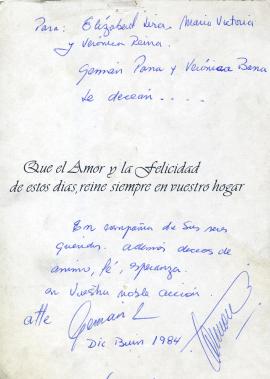 Para: Elizabert Lera María Victoria
y Verónica Reina.
Germán Pana y Verónica Bena
te decean . . . .
Que el Amor y la Felicidad
de estos dias, reine siempre en vuestro hogar
En compañia de sus seres
queridos. además deceos de
animo, fé, esperanza.
en vuestra noble acción.
atte German L
Dic 1984